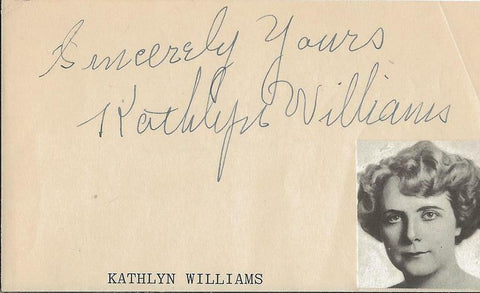 Sincerely Yours
Kathlyn Williams
KATHLYN WILLIAMS